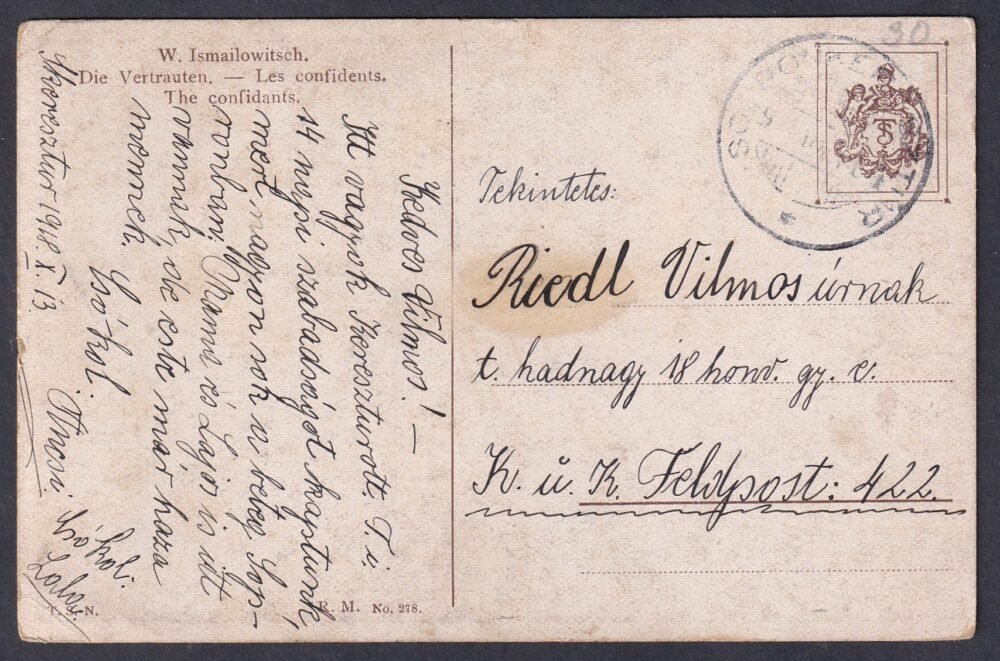 W. Ismailowitsch.
Die Vertrauten. — Les confidents.
The confidants.
Keresztur 1918. X. 13
Kedves Vilmos! —
Itt vagyok Kereszturott. T. i.
14 napi szabadságot kaptunk,
mert nagyon sok a beteg Sop-
ronban. Mama és Lajos is itt
vannak, de este már haza
mennek.
Csókol
Csó
kol:
Lajos
T. S. N.
R. M. No. 278.
30
TS
Tekintetes:
Riedl Vilmos úrnak
t. hadnagy 18 honv. gy. e.
K. u. K. Feldpost: 422.